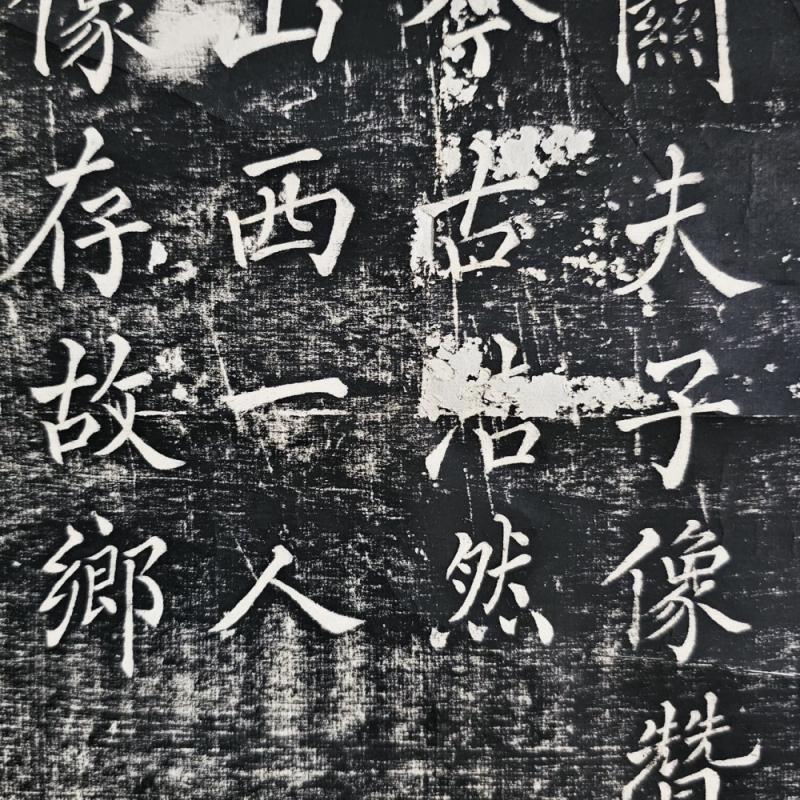 關夫子像贊
古浩然
山西一人
像存故鄉